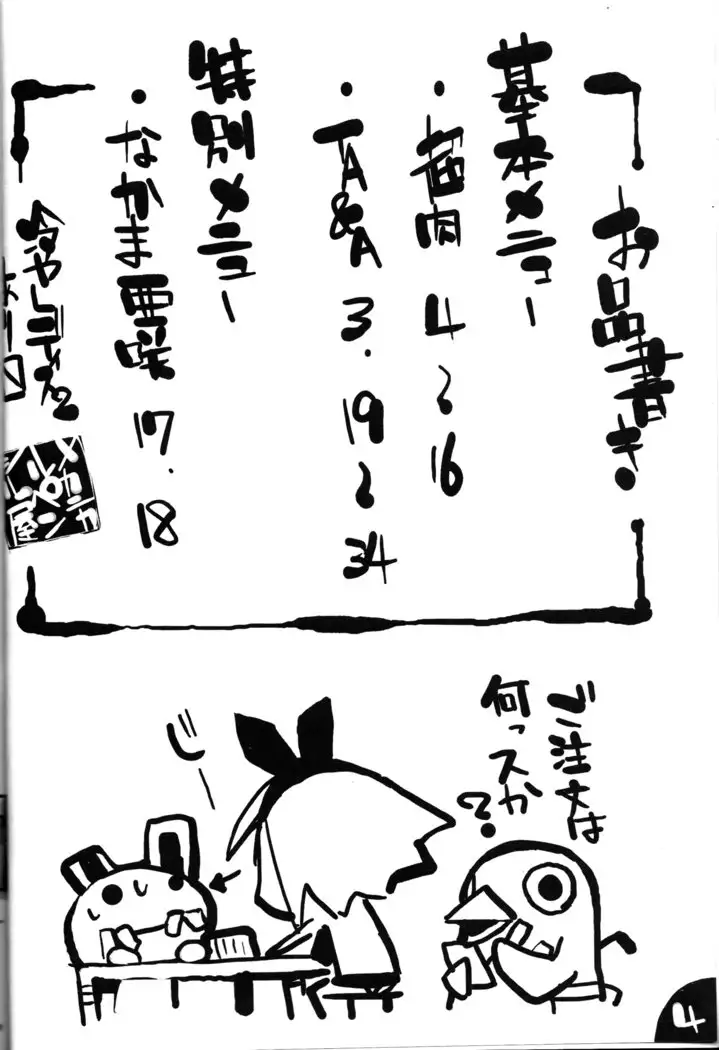 お品書き
基本メニュー
・猫肉 4～16
・TA&A 3.19～34
特別メニュー
・なかま亜咲 17.18
冷やしディスク
メカニャ
ご注文は
何っスか?
じー
4